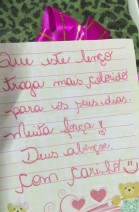 Que este lenço
traga mais colorido
para os seus dias.
Muita força!
Deus abençoe.
Com carinho